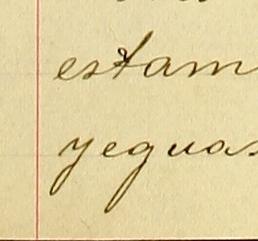 estam
yeguas